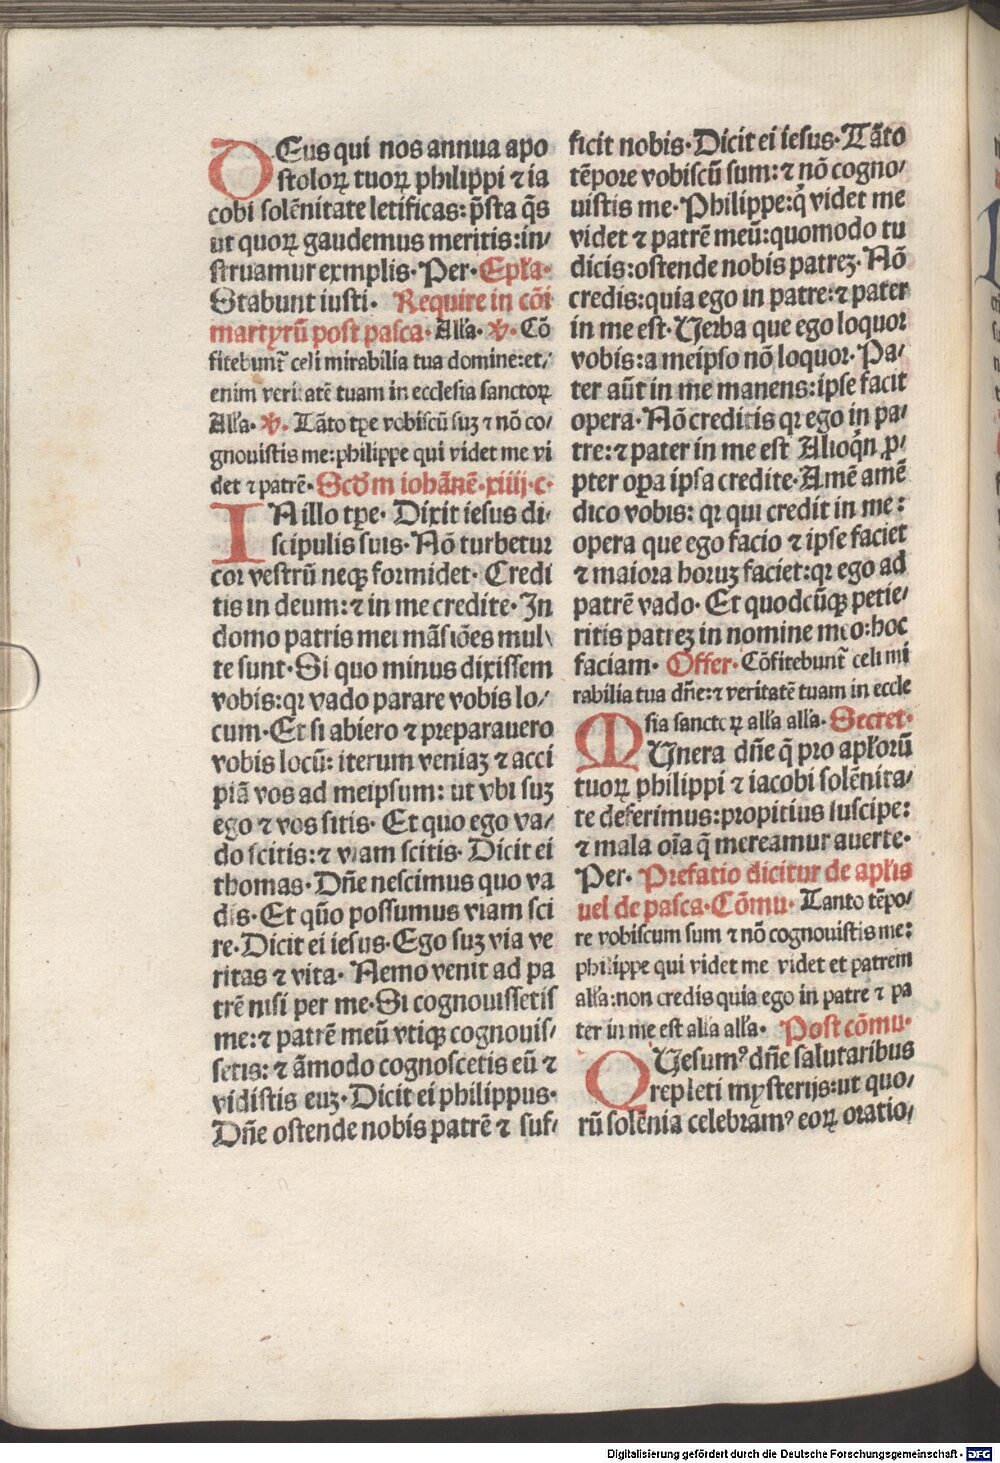 DEus qui nos annua apo
stoloꝝ tuoꝝ philippi ⁊ ia
cobi solẽnitate letificas: p̃sta q̃s
ut quoꝝ gaudemus meritis: in⸗
struamur exmplis. Per. Ep̃la.
Stabunt iusti. Require in cõi
martyrũ post pasca. Alla. ℣. Cõ
fitebunt᷑ celi mirabilia tua domine: et⸗
enim veritatẽ tuam in ecclesia sanctoꝝ
Alla. ℣. Tãto tꝑe vobiscũ suꝫ ⁊ nõ co⸗
gnouistis me: philippe qui videt me vi
det ⁊ patrẽ. Scd̃m iohãnẽ. xiiij. c.
IN illo tꝑe. Dixit iesus di⸗
scipulis suis. Nõ turbetur
cor vestrũ neqꝫ formidet. Credi
tis in deum: ⁊ in me credite. In
domo patris mei mãsiões mul⸗
te sunt. Si quo minus dixissem
vobis: qꝛ vado parare vobis lo⸗
cum. Et si abiero ⁊ preparauero
vobis locũ: iterum veniaꝫ ⁊ acci
piã vos ad meipsum: ut vbi suꝫ
ego ⁊ vos sitis. Et quo ego va⸗
do scitis: ⁊ viam scitis. Dicit ei
thomas. Dñe nescimus quo va
dis. Et qũo possumus viam sci
re. Dicit ei iesus. Ego suꝫ via ve
ritas ⁊ vita. Nemo venit ad pa
trẽ nisi per me. Si cognouissetis
me: ⁊ patrẽ meũ vtiqꝫ cognouis⸗
setis: ⁊ ãmodo cognoscetis eũ ⁊
vidistis euꝫ. Dicit ei philippus.
Dñe ostende nobis patrẽ ⁊ suf⸗
ficit nobis. Dicit ei iesus. Tãto
tẽpore vobiscũ sum: ⁊ nõ cogno⸗
uistis me. Philippe: q̇ videt me
videt ⁊ patrẽ meũ: quomodo tu
dicis: ostende nobis patreꝫ. Nõ
credis: quia ego in patre: ⁊ pater
in me est. Verba que ego loquor
vobis: a meipso nõ loquor. Pa⸗
ter aũt in me manens: ipse facit
opera. Nõ creditis qꝛ ego in pa⸗
tre: ⁊ pater in me est Alioq̇n ꝓ⸗
pter oꝑa ipsa credite. Amẽ amẽ
dico vobis: qꝛ qui credit in me:
opera que ego facio ⁊ ipse faciet
⁊ maiora horuꝫ faciet: qꝛ ego ad
patrẽ vado. Et quodcũqꝫ petie⸗
ritis patreꝫ in nomine meo: hoc
faciam. Offer. Cõfitebunt᷑ celi mi
rabilia tua dñe: ⁊ veritatẽ tuam in eccle
sia sanctoꝝ alla alla. Secret.
MVnera dñe q̃ pro apl̃orũ
tuoꝝ philippi ⁊ iacobi solẽnita⸗
te deferimus: propitius suscipe:
⁊ mala oĩa q̃ mereamur auerte.
Per. Prefatio dicitur de apl̃is
uel de pasca. Cõmu. Tanto tẽpo⸗
re vobiscum sum ⁊ nõ cognouistis me:
philippe qui videt me videt et patrem
alla: non credis quia ego in patre ⁊ pa
ter in me est alla alla. Post cõmu.
QVesumꝰ dñe salutaribus
repleti mysterijs: ut quo⸗
rũ solẽnia celebramꝰ eoꝝ oratio⸗
Digitalisierung gefördert durch die Deutsche Forschungsgemeinschaft - DFG